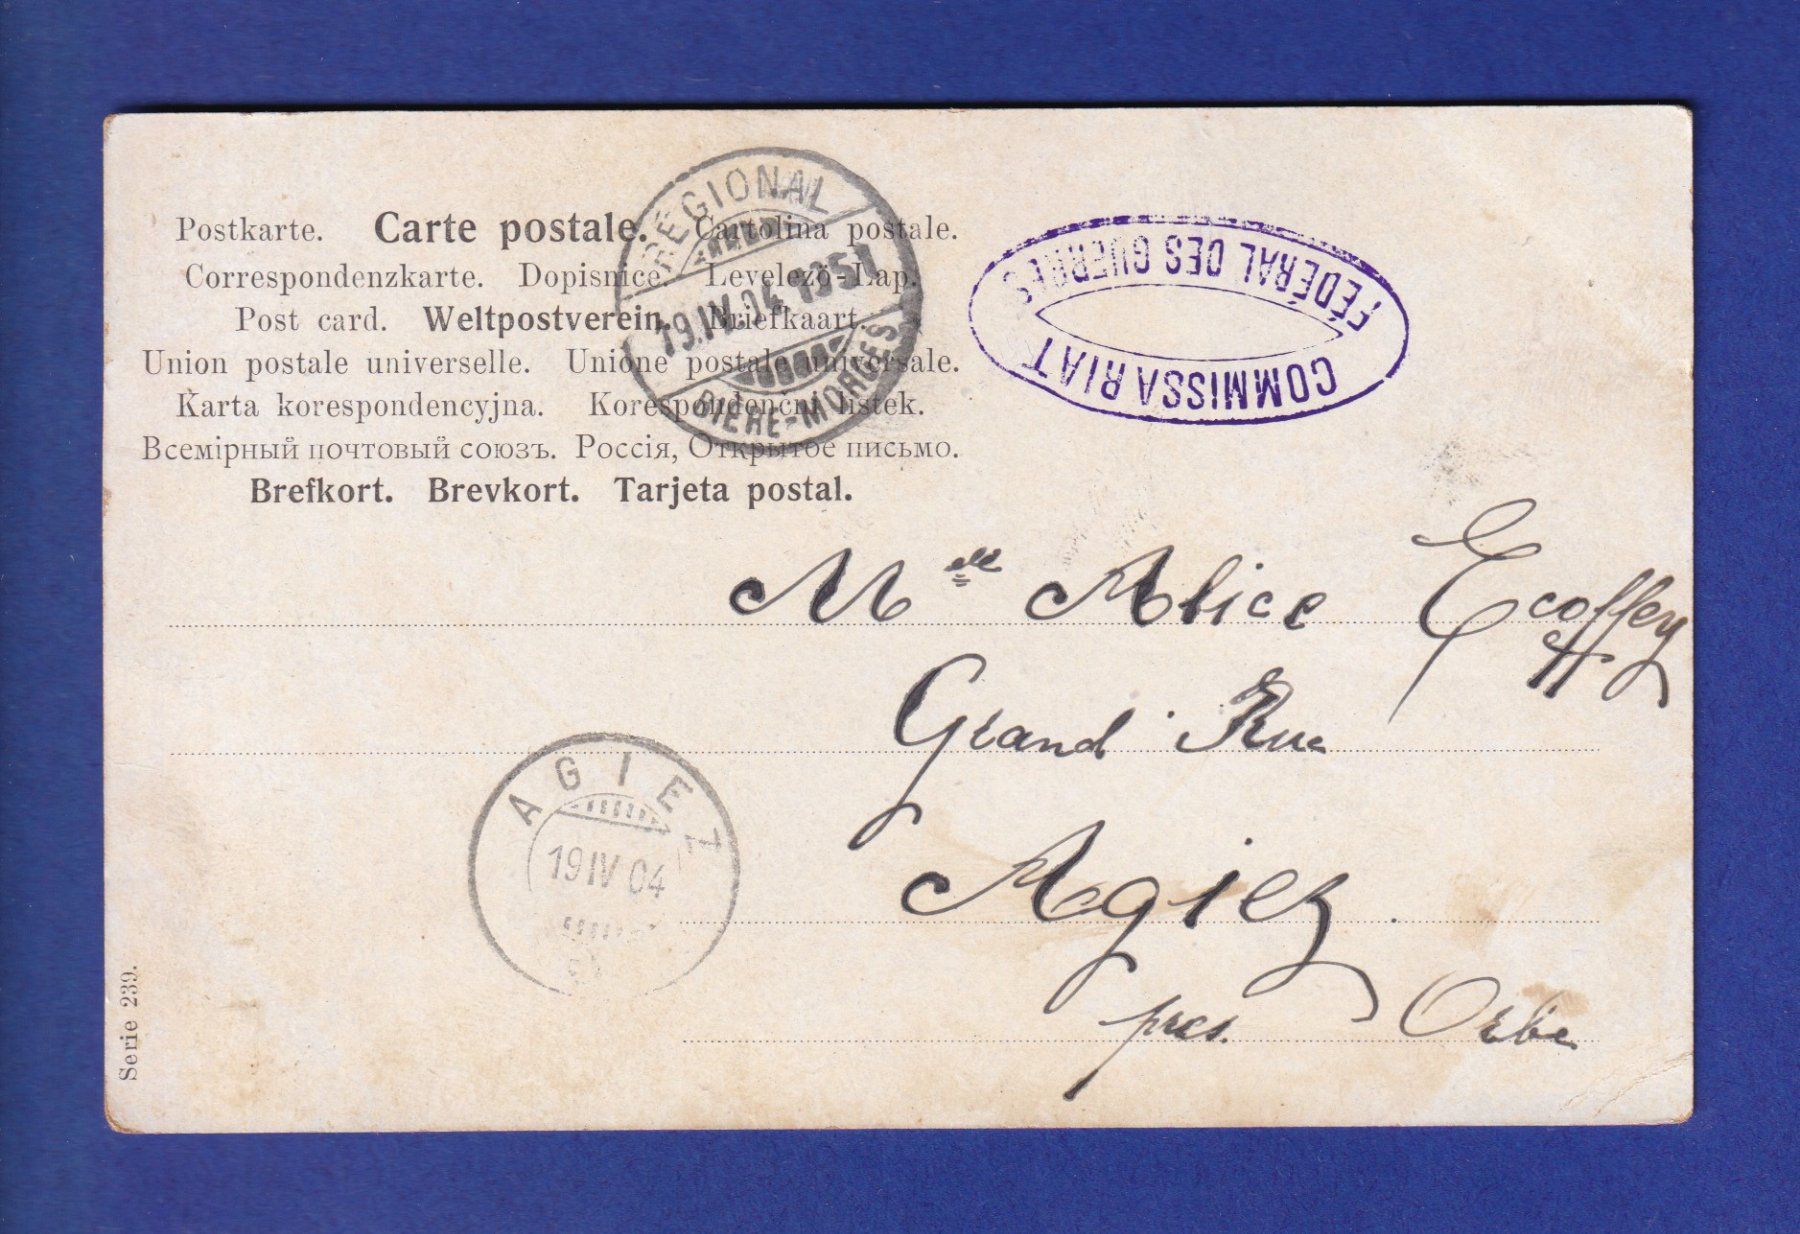 Postkarte. Carte postale. Cartolina postale.
Correspondenzkarte. Dopisnice. Levelező-Lap.
Post card. Weltpostverein. Briefkaart.
Union postale universelle. Unione postale universale.
Karta korespondencyjna. Korespondencni listek.
Всемірный почтовый союзъ. Россія, Открытое письмо.
Brefkort. Brevkort. Tarjeta postal.
REGIONAL
19.IV.04
BIERE-MORGES
COMMISSARIAT
FÉDÉRAL DES GUERRES
Melle Alice Ecoffey
Grand Rue
Agiez.
pres. Orbe
AGIEZ
19 IV 04
Serie 239.